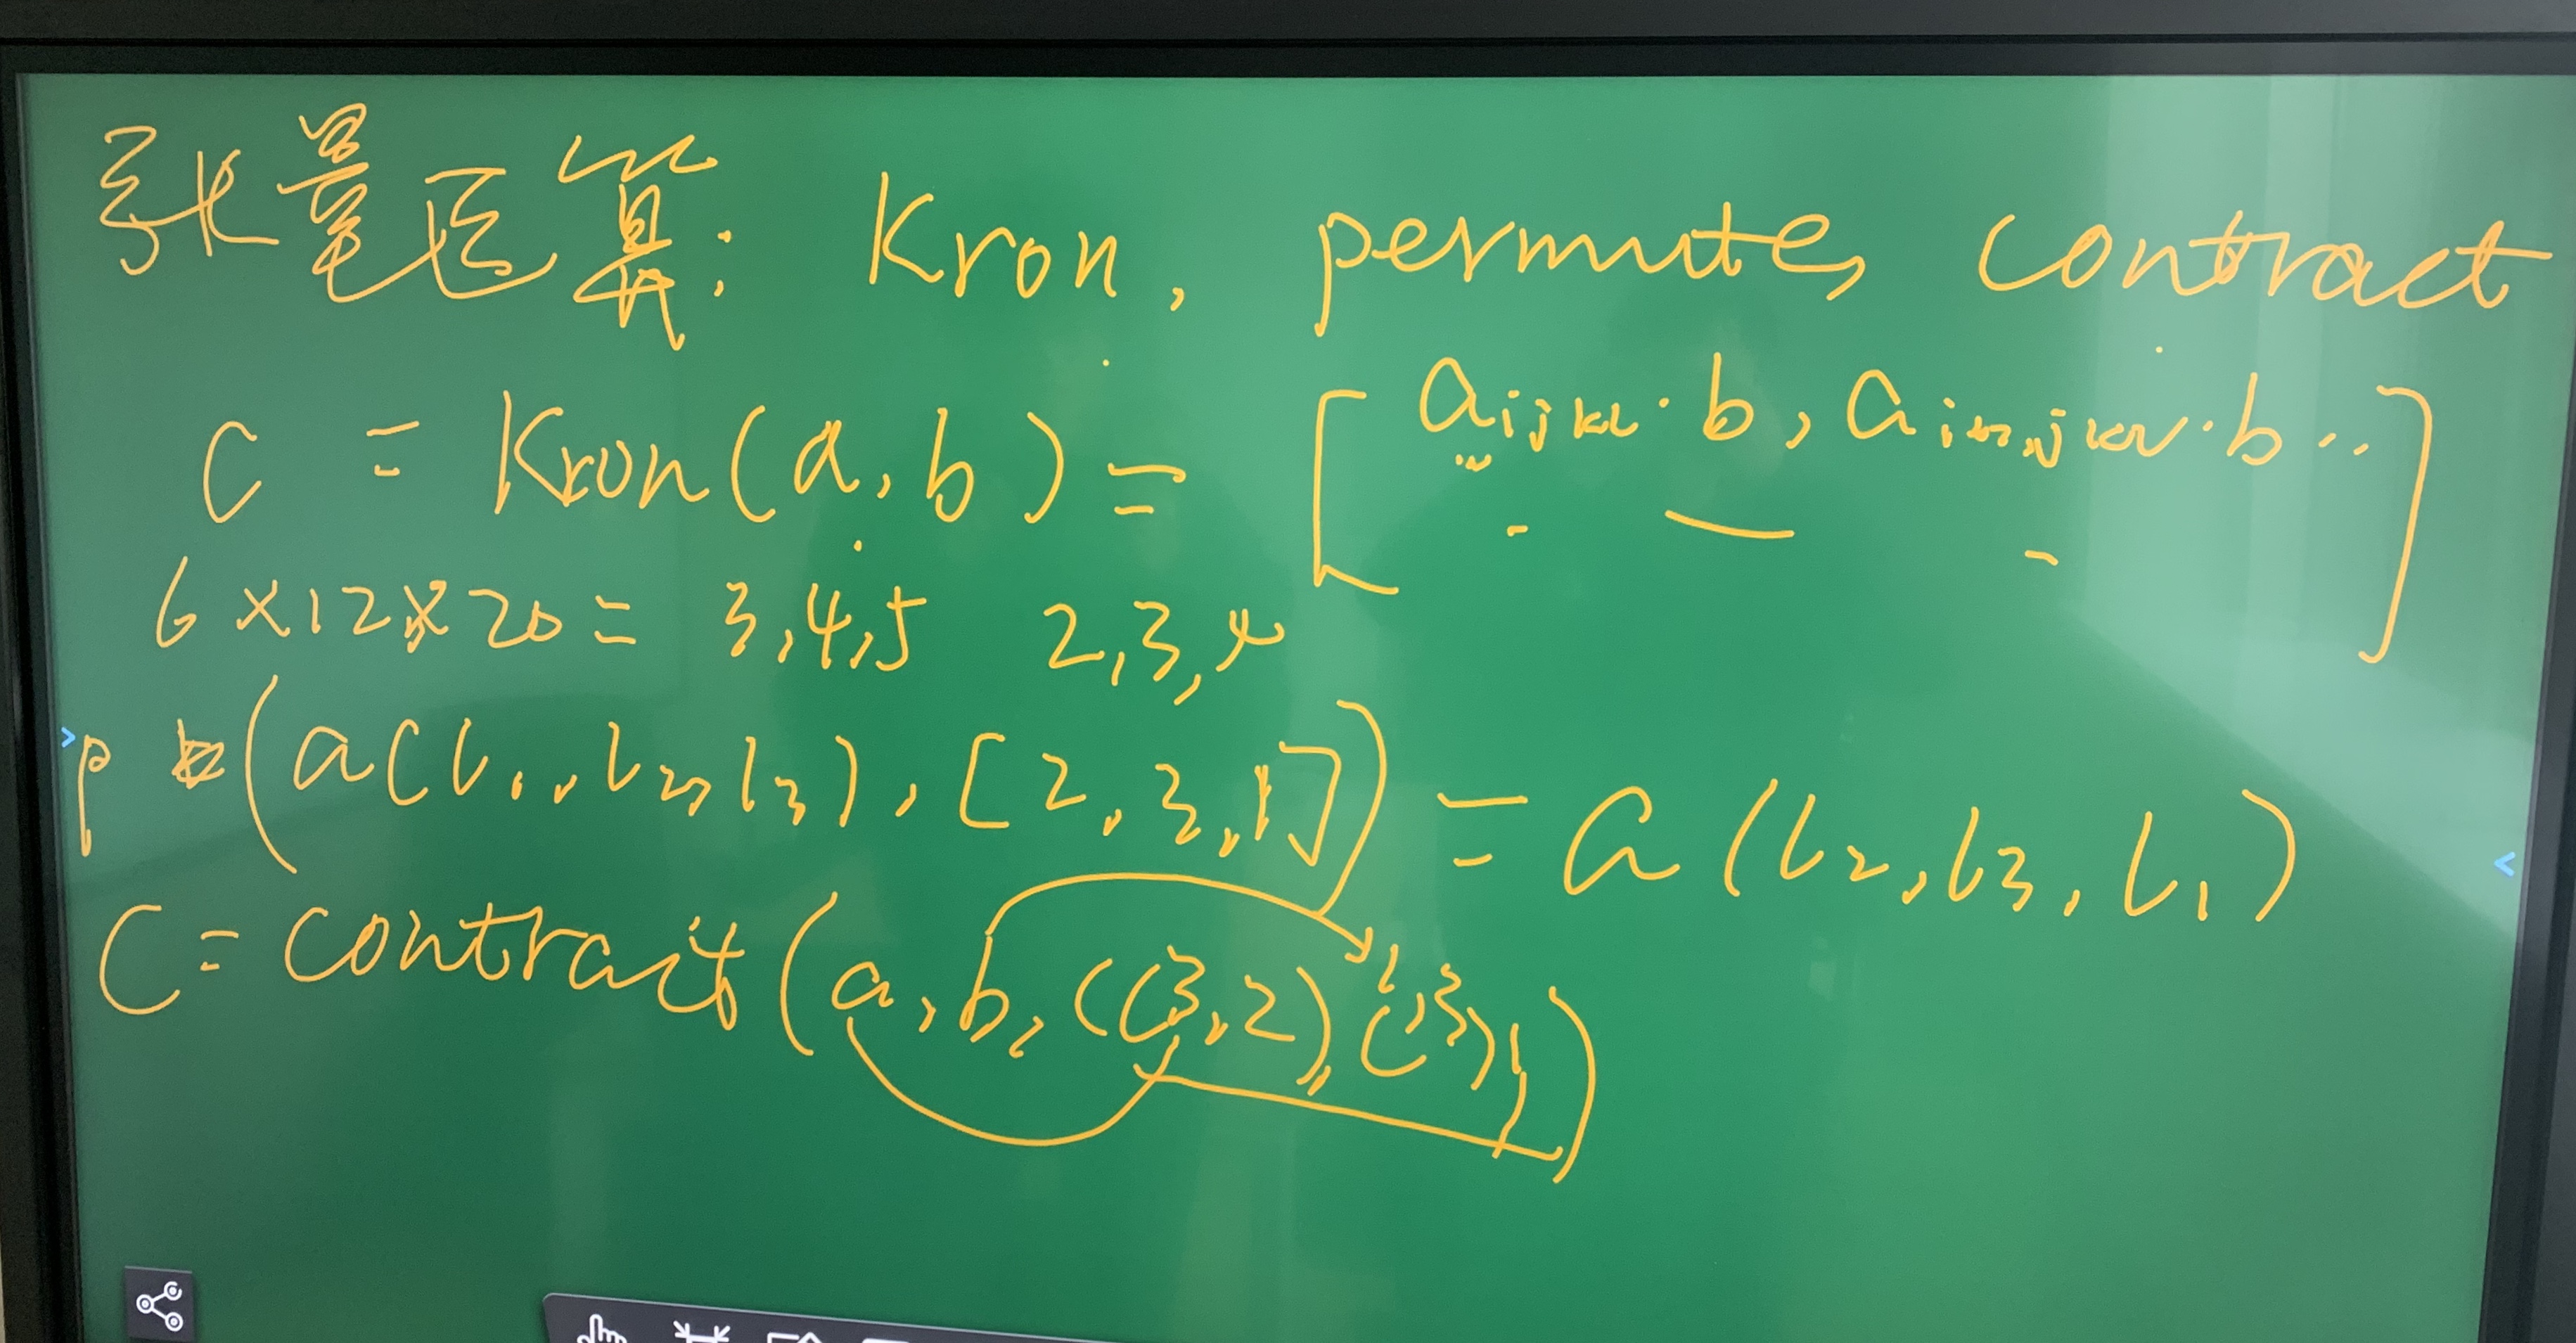 张量运算: Kron, permute, contract
C = Kron(a, b) = [a_{ijkl}·b, a_{i+1,jkl}·b ..]
6×12×20 = 3,4,5 2,3,4
p (a(l_1, l_2, l_3), [2,3,1]) = a(l_2, l_3, l_1)
C = contract(a, b, ((3,2), (1,3)))